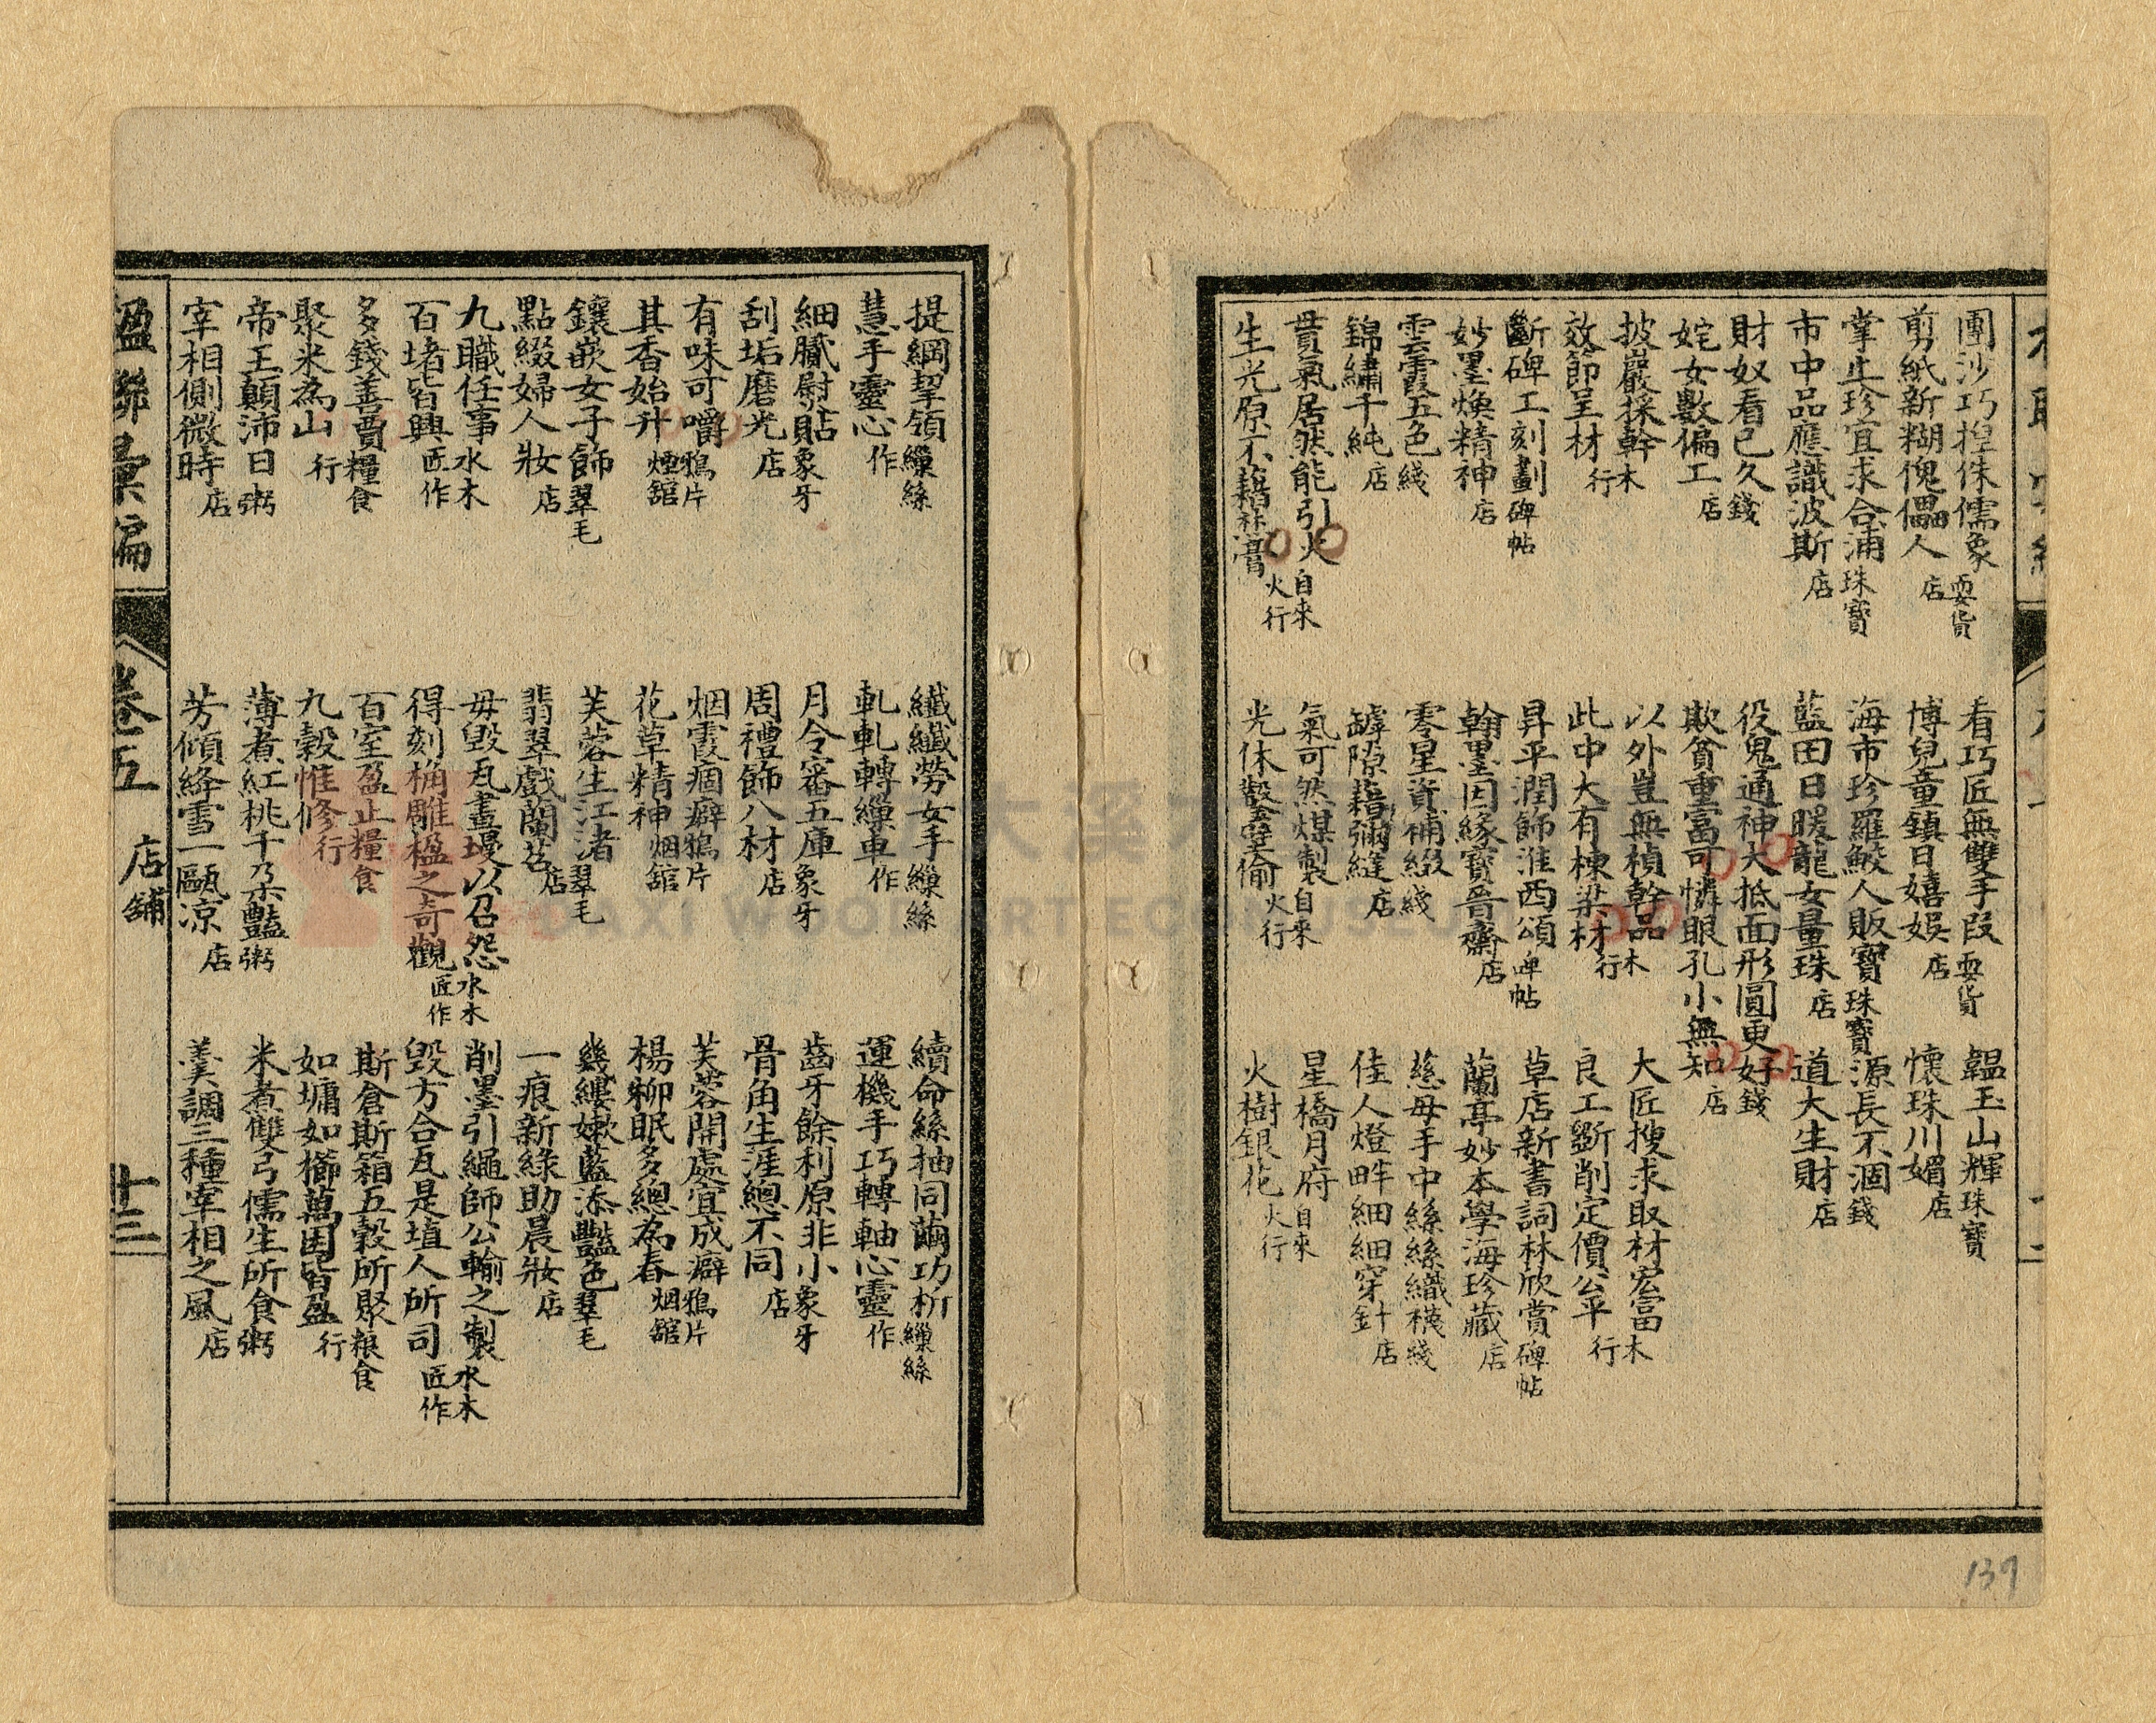 團沙巧捏侏儒象耍貨
剪紙新糊傀儡人店
掌上珍宜求合浦珠寶
市中品應識波斯店
財奴看已久錢
姹女數偏工店
披巖採幹木
效節呈材行
斷碑工刻劃碑帖
妙墨煥精神店
雲霞五色綫
錦繡千純店
貫氣居然能引火自來
生光原不藉焚膏火行
看巧匠無雙手段耍貨
博兒童鎮日嬉娛店
海市珍羅鮫人販寶珠寶
藍田日暖龍女量珠店
役鬼通神大抵面形圓更好錢
欺貧重富可憐眼孔小無知店
以外豈無楨幹品木
此中大有棟梁材行
昇平潤飾淮西頌碑帖
翰墨因緣寶晉齋店
零星資補綴綫
罅隙藉彌縫店
氣可然煤製自來
光休鑿壁偷火行
韞玉山輝珠寶
懷珠川媚店
源長不涸錢
道大生財店
大匠搜求取材宏富木
良工斲削定價公平行
草店新書詞林欣賞碑帖
蘭亭妙本學海珍藏店
慈母手中絲絲織襪綫
佳人燈畔細細穿針店
星橋月府自來
火樹銀花火行
139
提綱挈領繅絲
慧手靈心作
細膩慰貼象牙
刮垢磨光店
有味可嚼鴉片
其香始升煙舘
鑲嵌女子飾翠毛
點綴婦人妝店
九職任事水木
百堵皆興匠作
多錢善賈糧食
聚米為山行
帝王顛沛日粥
宰相側微時店
纖纖勞女手繅絲
軋軋轉繅車作
月令審五庫象牙
周禮飾八材店
烟霞痼癖鴉片
花草精神烟舘
芙蓉生江渚翠毛
翡翠戲蘭苕店
毋毀瓦畫墁以召怨水木
得刻桷雕楹之奇觀匠作
百室盈止糧食
九穀惟修行
薄煮紅桃千朵豔粥
芳傾絳雪一甌凉店
續命絲抽同繭功析繅絲
運機手巧轉軸心靈作
齒牙餘利原非小象牙
骨角生涯總不同店
芙蓉開處宜成癖鴉片
楊柳眠多總為春烟舘
幾縷嫩藍添豔色翠毛
一痕新綠助晨妝店
削墨引繩師公輸之製水木
毀方合瓦是埴人所司匠作
斯倉斯箱五穀所聚粮食
如墉如櫛萬囷皆盈行
米煮雙弓儒生所食粥
羹調三種宰相之風店
楹聯彙編
卷五 店舖
十三
DAXI WOOD ART ECOMUSEUM